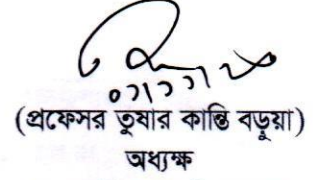 (প্রফেসর তুষার কান্তি বড়ুয়া)
অধ্যক্ষ